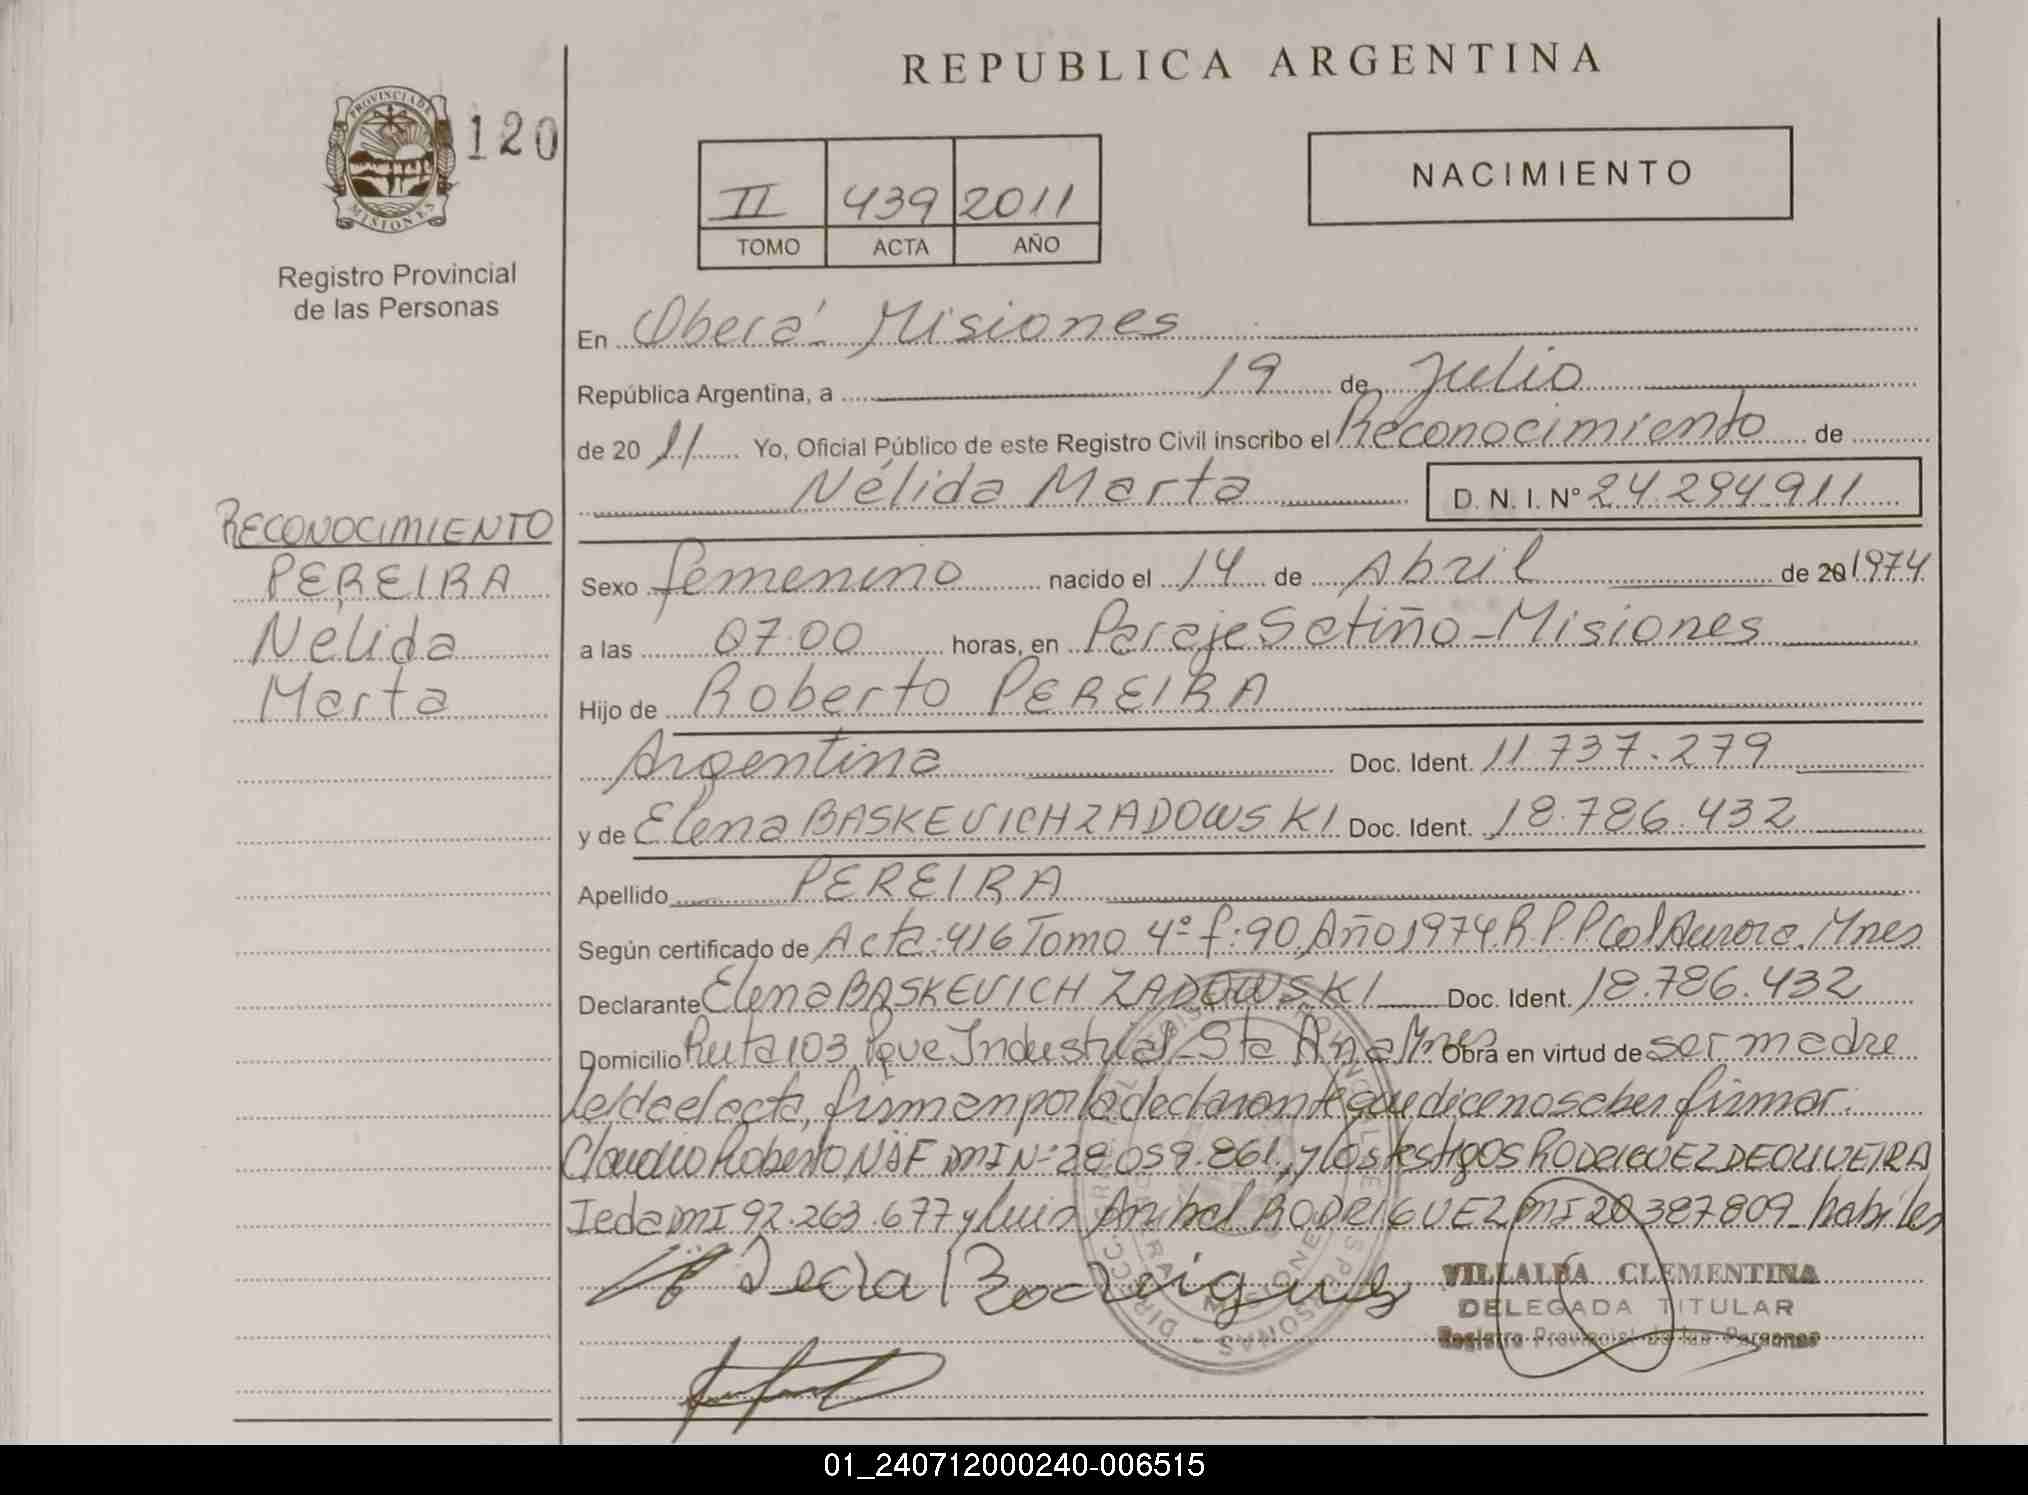 REPUBLICA ARGENTINA
PROVINCIA DE
MISIONES
120
Registro Provincial
de las Personas
II 439 2011
TOMO ACTA AÑO
NACIMIENTO
En Oberá - Misiones
República Argentina, a 19 de Julio
de 20 11 Yo, Oficial Público de este Registro Civil inscribo el Reconocimiento de
Nélida Marta D. N. I. Nº 24.294.911
RECONOCIMIENTO
PEREIRA
Nélida
Marta
Sexo femenino nacido el 14 de Abril de 20 1974
a las 07.00 horas, en Paraje Satiño - Misiones
Hijo de Roberto PEREIRA
Argentina Doc. Ident. 11.737.279
y de Elena BASKEVICH ZADOWSKI Doc. Ident. 18.786.432
Apellido PEREIRA
Según certificado de Acta: 416 Tomo 4º f: 90 Año 1974 R.P.P Col Aurora. Mnes
Declarante Elena BASKEVICH ZADOWSKI Doc. Ident. 18.786.432
Domicilio Ruta 103 Pque Industrial - Sta Ana Mnes Obra en virtud de ser madre
leída el acta, firman por la declarante que dice no saber firmar.
Claudio Roberto NÜF MI Nº 28.059.861, y los testigos RODRIGUEZ DE OLIVEIRA
Ieda MI 92.263.677 y Luis Anibal RODRIGUEZ MI 20.387809_ habiles
Rodriguez
VILLALBA CLEMENTINA
DELEGADA TITULAR
Registro Provincial de las Personas
MISIONES
01_240712000240-006515